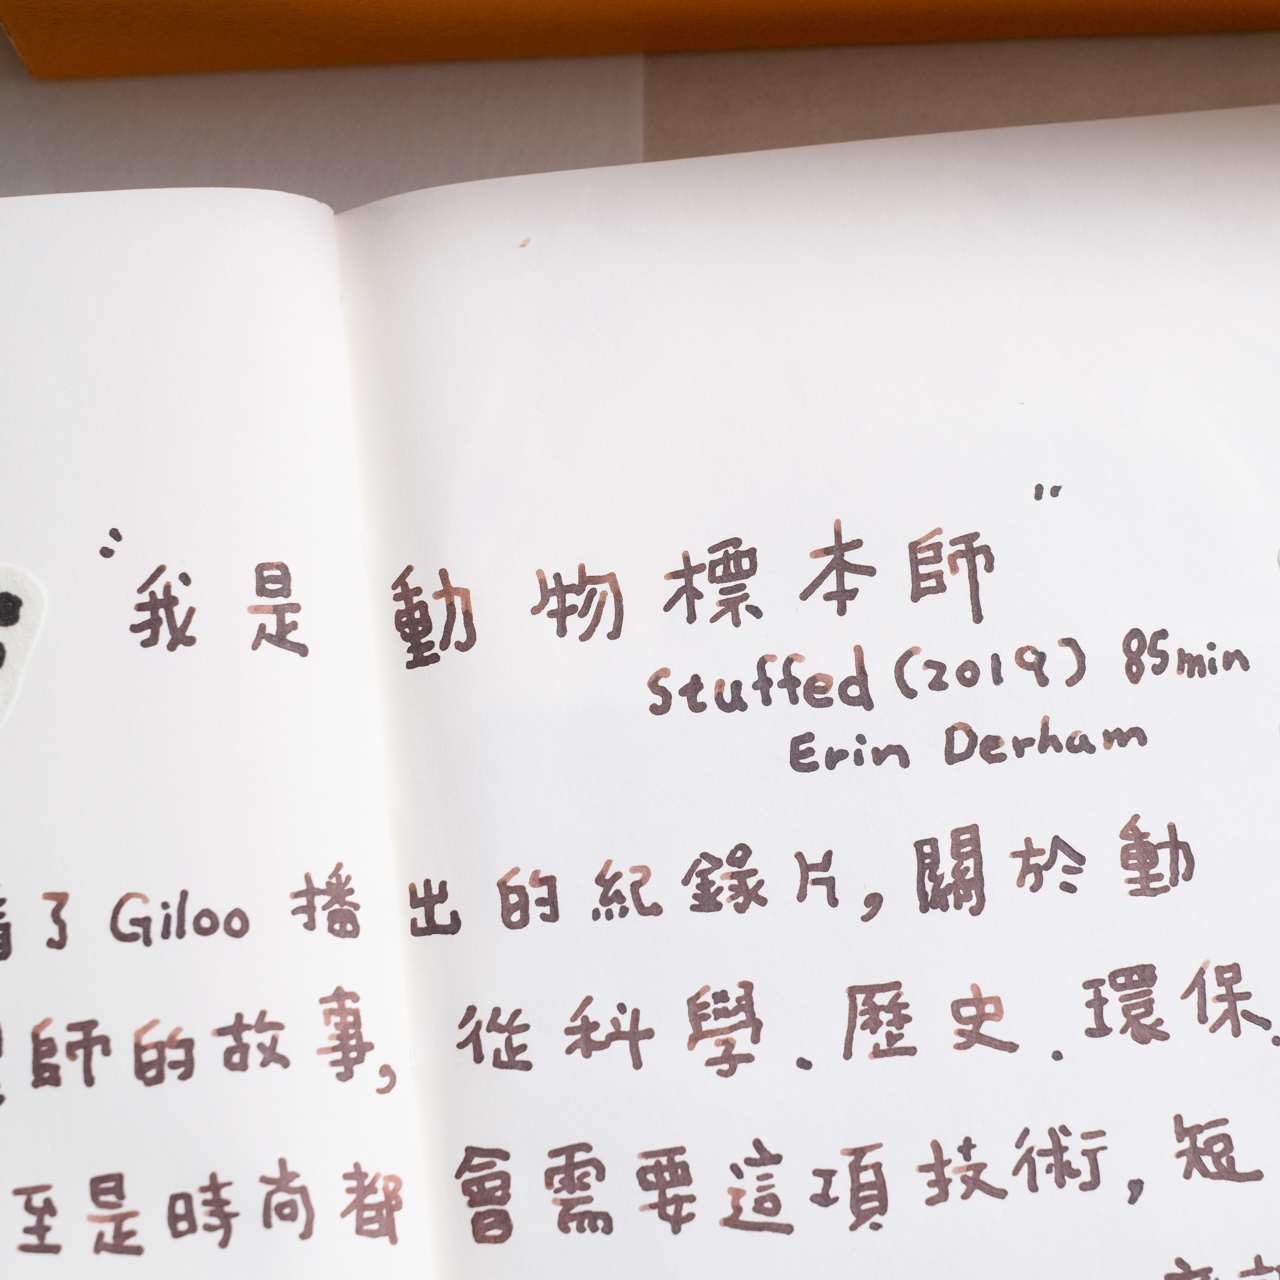 "我是動物標本師"
Stuffed (2019) 85min
Erin Derham
了 Giloo 播出的紀錄片,關於動
師的故事,從科學.歷史.環保.
至是時尚都會需要這項技術,短